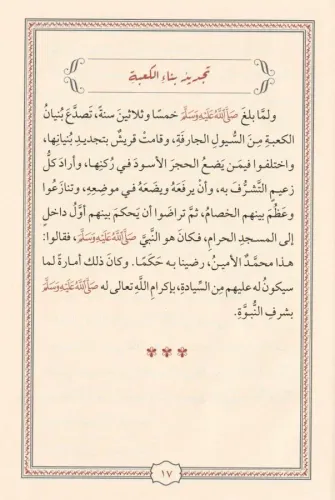 تجديد بناء الكعبة
ولمَّا بلغَ صَلَّى اللَّهُ عَلَيْهِ وَسَلَّمَ خمسًا وثلاثينَ سنةً، تَصدَّعَ بُنيانُ
الكعبةِ مِنَ السُّيولِ الجارفةِ، وقامتْ قريشٌ بتجديدِ بُنيانِها،
واختلفوا فيمَن يَضعُ الحجرَ الأسودَ في رُكنِها، وأرادَ كلُّ
زعيمٍ التَّشرُّفَ به، وأنْ يرفَعَهُ ويضَعَهُ في موضعِهِ، وتنازَعُوا
وعَظُمَ بينهم الخصامُ، ثمَّ تراضَوا أن يَحكمَ بينهم أوَّلُ داخلٍ
إلى المسجدِ الحرامِ، فكانَ هو النبيَّ صَلَّى اللَّهُ عَلَيْهِ وَسَلَّمَ، فقالوا:
هذا محمَّدٌ الأمينُ، رضينا به حَكَمًا. وكانَ ذلك أمارةً لما
سيكونُ له عليهم مِن السِّيادةِ، بإكرامِ اللَّهِ تعالى له صَلَّى اللَّهُ عَلَيْهِ وَسَلَّمَ
بشرفِ النُّبوَّةِ.
١٧